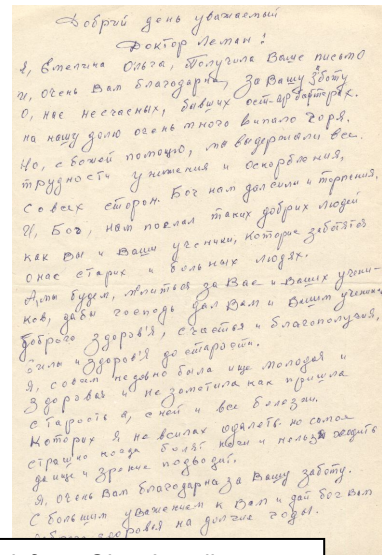 Добрий день уважаемый
Доктор Леман!
Я, Емелина Ольга, Получила Ваше письмо
и, очень Вам благодарна, за Вашу заботу
О, нас несчасных, бывших ост-арбайтерах.
на нашу долю очень много випало горя.
Но, с божей помощю, мы выдержали все.
трудности унижения и оскорбления,
Со всех сторон. Бог нам дал сили и терпения,
И, Бог, нам послал таких добрих людей
как Вы и Ваши ученики, которие заботятся
о нас старих и больных людях.
А, мы будем, молиться за Вас и Ваших учени-
ков, дабы господь дал Вам и Вашим ученикам,
доброго здоров'я, счастья и благополучия,
силы и здоров'я до старости.
Я, совсем недавно была ище молодая и
здоровая и не замотила как пришла
старость а, с ней и все болезни.
Которих я не всилах одалеть. но самое
страшно когда болят ноги и нельзя ходить
да ище и зрение подводит.
Я, очень Вам благодарна за Вашу заботу.
С большим уважением к Вам и дай бог Вам
здоровея на долгие годы.